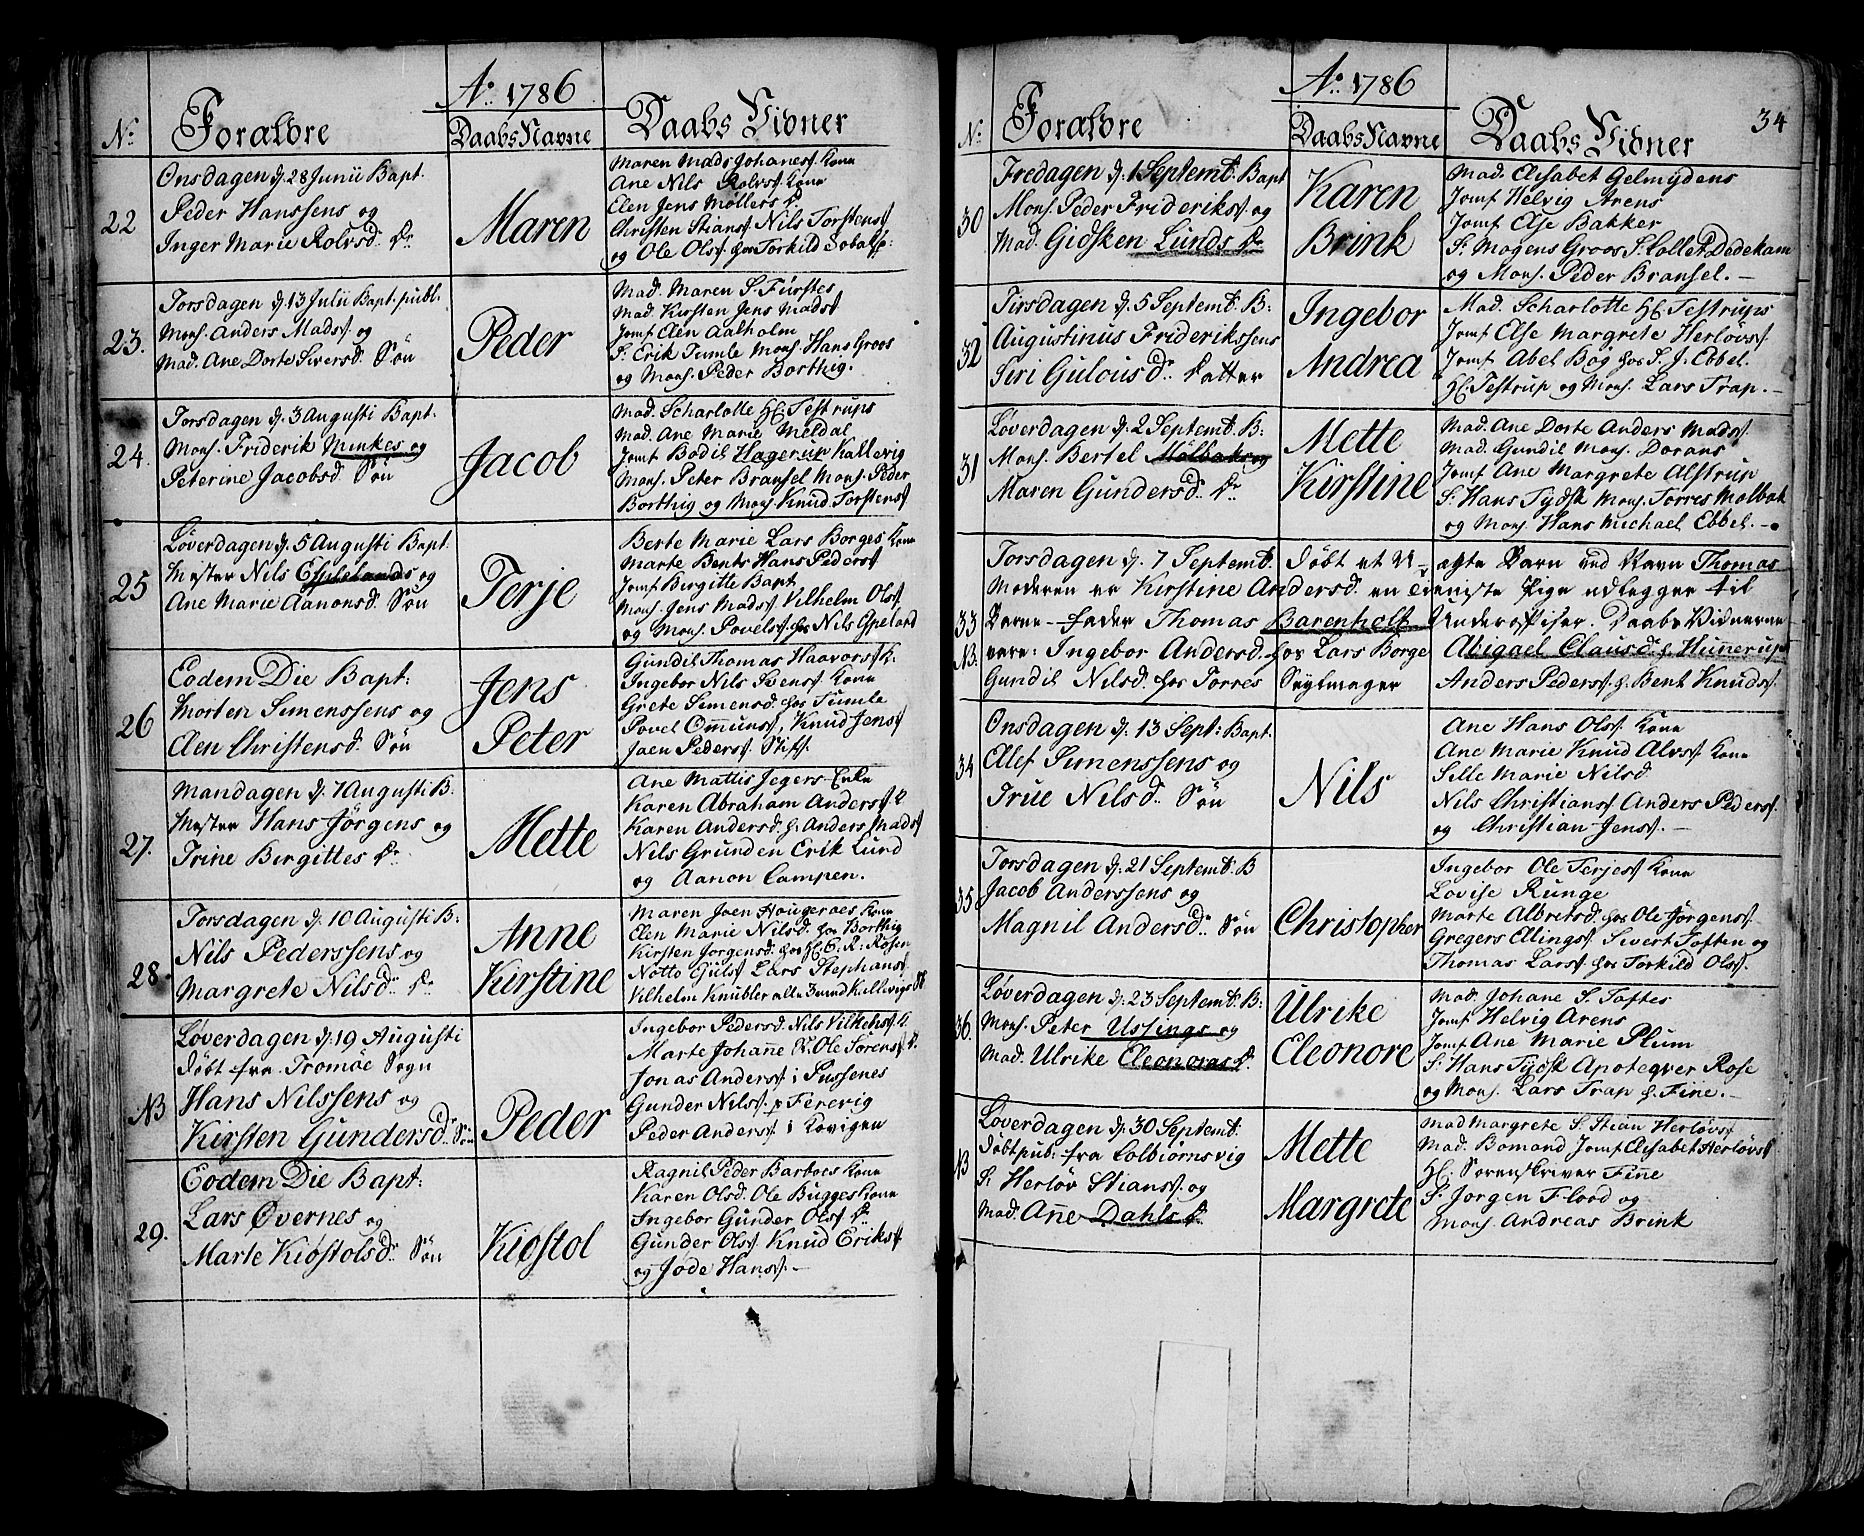 Ao. 1786
No. Forældre DaabsNavne Daabs Vidner
22
Onsdagen d. 28 Junii Bapt.
Peder Hanssens og
Inger Marie Rolvsd. Dr.
Maren
Maren Mads Johanes. Kone
Ane Nils Rolvs. Kone
Elen Jens Møllers Dr.
Christen Stians. Nils Torstens.
og Ole Ols. hos Torkild
23.
Torsdagen d. 13 Julii Bapt. publ.
Mons. Anders Mads. og
Mad. Ane Dorte Siversd. Søn
Peder
Mad. Maren S. Fürstes
Mad. Kirsten Jens Mads.
Jomf. Elen Aalholm
S. Erik Tumle Mons. Hans Groos
og Mons. Peder Borthig.
24.
Torsdagen d. 3 Augusti Bapt:
Mons. Friderik Minkes og
Peterine Jacobsd. Søn
Jacob
Mad. Scharlotte H. Testrups
Mad. Ane Marie Meldal
Jomf. Bodil Hagerup Kallevig
Mons. Peter Bransel Mons. Peder
Borthig og Mons. Knud Torstens.
25
Løverdagen d. 5 Augusti Bapt.
Mester Nils Espelands og
Ane Marie Aanonsd. Søn
Terje
Berte Marie Lars Borges Kone
Marte Bents Hans Peders.
Jomf. Birgitte Bapt
Mons. Jens Mads. Vilhelm Ols.
og Mons. Povels. hos Nils Espeland
26
Eodem Die Bapt:
Morten Simenssens og
Elen Christensd. Søn
Jens
Peter
Gundil Thomas Haavors. K.
Ingebor Nils Svens. Kone
Grete Simensd. hos Tumle
Povel Omunds. Knud Jens.
Jaen Peders.
27.
Mandagen d. 7 Augusti B.
Mester Hans Jørgens og
Trine Birgittes Dr.
Mette
Ane Mattis Jegers Enke
Karen Abraham Anders. K
Karen Andersd. h. Anders Mads.
Nils Grunden Erik Lund
og Aanon Campen.
28
Torsdagen d. 10 Augusti B:
Nils Pederssens og
Margrete Nilsd. Dr.
Anne
Kirstine
Maren Jaen Hougeraes Kone
Elen Marie Nilsd. hos Borthig
Kirsten Jørgensd. hos H. C. R. Rosen
Notto Guls. Lars Stephans.
Vilhelm Knubler alle
NB
Løverdagen d. 19 Augusti
Døbt fra Tromøe Sogn
Hans Nilssens og
Kirsten Gundersd. Søn
Peder
Ingebor Pedersd. Nils Vilkens. K.
Marte Johane K. Ole Sørens. D.
Jonas Anders. i Pussenes
Gunder Nils. p Ferevig
Peder Anders. i Kovigen
29.
Eodem Die Bapt:
Lars Øvernes og
Marte Kiøstolsd. Søn
Kiøstol
Ragnil Peder Barboes Kone
Karen Olsd. Ole Bugges Kone
Ingebor Gunder Ols. Dr.
Gunder Ols. Knud Eriks.
og Jøde Hans.
Ao. 1786
34
No. Forældre DaabsNavne Daabs Vidner
30
Fredagen d. 1 Septemt. Bapt
Mons. Peder Frideriks. og
Mad. Gidsken Lunds Dr.
Karen
Brink
Mad. Elisabet Gelmydens
Jomf. Helvig Arens
Jomf. Else Bakker
S. Mogens Groos S. Collet Dedekam
og Mons. Peder Bransel.
32
Tirsdagen d. 5 Septemt. B:
Augustinus Frideriksens
Siri Gulousd. Datter
Ingebor
Andrea
Mad. Scharlotte H. Testrups
Jomf. Else Margrete Herløvs.
Jomf. Abel Bog hos S. J. Ebbel.
H. Testrup og Mons. Lars Trap.
31
Løverdagen d. 2 Septemt. B:
Mons. Bertel Mølbaks og
Maren Gundersd. Dr.
Mette
Kirstine
Mad. Ane Dorte Anders Mads.
Mad. Gundil Mons. Dorans
Jomf. Ane Margrete Alstrup
S. Hans Tydsk Mons. Torres Molbak
og Mons. Hans Michael Ebbel.
33
NB.
Torsdagen d. 7 Septemt. Døbt et U-ægte Barn ved Navn Thomas
Moderen er Kirstine Andersd. en tieniste Pige udlegger til
Barne-fader Thomas Barenholt Underofficer. Daabs Vidnerne
vare: Ingebor Andersd. hos Lars Borge Abigael Clausd. h. Hunnerup
Gundil Nilsd. hos Torres Seylmager Anders Peders. h. Bent Knuds.
34
Onsdagen d. 13 Sept: Bapt.
Alef Simenssens og
True Nilsd. Søn
Nils
Ane Hans Ols. Kone
Ane Marie Knud Alvs. Kone
Sille Marie Nilsd.
Nils Christians. Anders Peders.
og Christian Jens.
35
Torsdagen d. 21 Septemt. B
Jacob Anderssens og
Magnil Andersd. Søn
Christopher
Ingebor Ole Terjes. Kone
Lovise Runge
Marte Albretsd. hos Ole Jørgens.
Gregers Elings. Sivert Toften og
Thomas Lars. hos Torkild Ols.
36.
Løverdagen d. 23 Septemt. B:
Mons. Peter Ussings og
Mad. Ulrike Eleonoras D.
Ulrike
Eleonore
Mad. Johane S. Toftes
Jomf. Helvig Arens
Jomf. Ane Marie Plum
S. Hans Tydsk Apoteqver Rose
og Mons. Lars Trap h. Fine.
NB
Løverdagen d. 30 Septemt.
Døbt pub: fra Colbiørnsvig
S. Herløv Stians. og
Mad. Anne Dahls D.
Mette
Margrete
Mad Margrete S. Stian Herløvs.
Mad. Bomand Jomf. Elisabet Herløvs.
H. Sorenskriver Fine
S. Jørgen Flood og
Mons. Andreas Brink